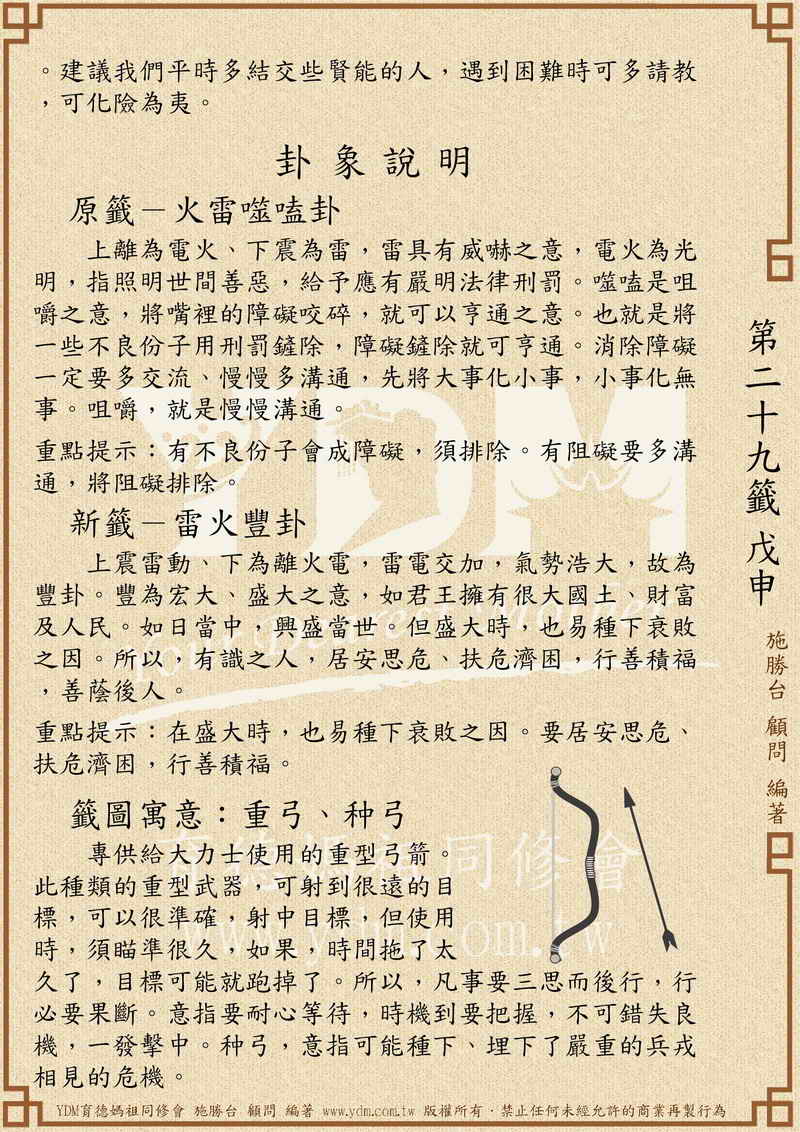 。建議我們平時多結交些賢能的人，遇到困難時可多請教
，可化險為夷。
卦象說明
原籤－火雷噬嗑卦
上離為電火、下震為雷，雷具有威嚇之意，電火為光
明，指照明世間善惡，給予應有嚴明法律刑罰。噬嗑是咀
嚼之意，將嘴裡的障礙咬碎，就可以亨通之意。也就是將
一些不良份子用刑罰鏟除，障礙鏟除就可亨通。消除障礙
一定要多交流、慢慢多溝通，先將大事化小事，小事化無
事。咀嚼，就是慢慢溝通。
重點提示：有不良份子會成障礙，須排除。有阻礙要多溝
通，將阻礙排除。
新籤－雷火豐卦
上震雷動、下為離火電，雷電交加，氣勢浩大，故為
豐卦。豐為宏大、盛大之意，如君王擁有很大國土、財富
及人民。如日當中，興盛當世。但盛大時，也易種下衰敗
之因。所以，有識之人，居安思危、扶危濟困，行善積福
，善蔭後人。
重點提示：在盛大時，也易種下衰敗之因。要居安思危、
扶危濟困，行善積福。
籤圖寓意：重弓、种弓
專供給大力士使用的重型弓箭。
此種類的重型武器，可射到很遠的目
標，可以很準確，射中目標，但使用
時，須瞄準很久，如果，時間拖了太
久了，目標可能就跑掉了。所以，凡事要三思而後行，行
必要果斷。意指要耐心等待，時機到要把握，不可錯失良
機，一發擊中。种弓，意指可能種下、埋下了嚴重的兵戎
相見的危機。
第二十九籤 戊申
施勝台 顧問 編著
YDM
同修會
www.ydm.com.tw
YDM育德媽祖同修會 施勝台 顧問 編著 www.ydm.com.tw 版權所有．禁止任何未經允許的商業再製行為